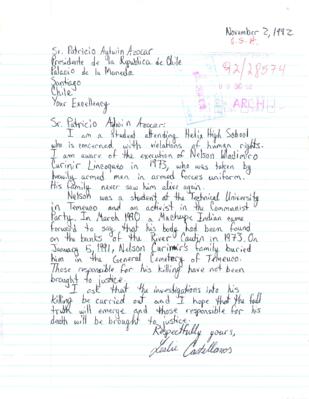 November 2, 1992
U.S.A.
92/28574
ARCHI
Sr. Patricio Aylwin Azocar
Presidente de la Republica de Chile
Palacio de la Moneda
Santiago
Chile
Your Excellency
Sr. Patricio Aylwin Azocar:
I am a student attending Helix High School
who is concerned with violations of human rights.
I am aware of the execution of Nelson Wladimiro
Curiñir Lincoqueo in 1973, who was taken by
heavily armed men in armed forces uniform.
His family never saw him alive again.
Nelson was a student at the Technical University
in Temuco and an activist in the Communist
Party. In March 1990 a Machupe Indian came
forward to say that his body had been found
on the banks of the River Cautin in 1973. On
January 5, 1991, Nelson Curiñir's family buried
him in the General Cemetery of Temuco.
Those responsible for his killing have not been
brought to justice.
I ask that the investigations into his
killing be carried out and I hope that the full
truth will emerge and those responsible for his
death will be brought to justice.
Respectfully yours,
Leslie Castellanos